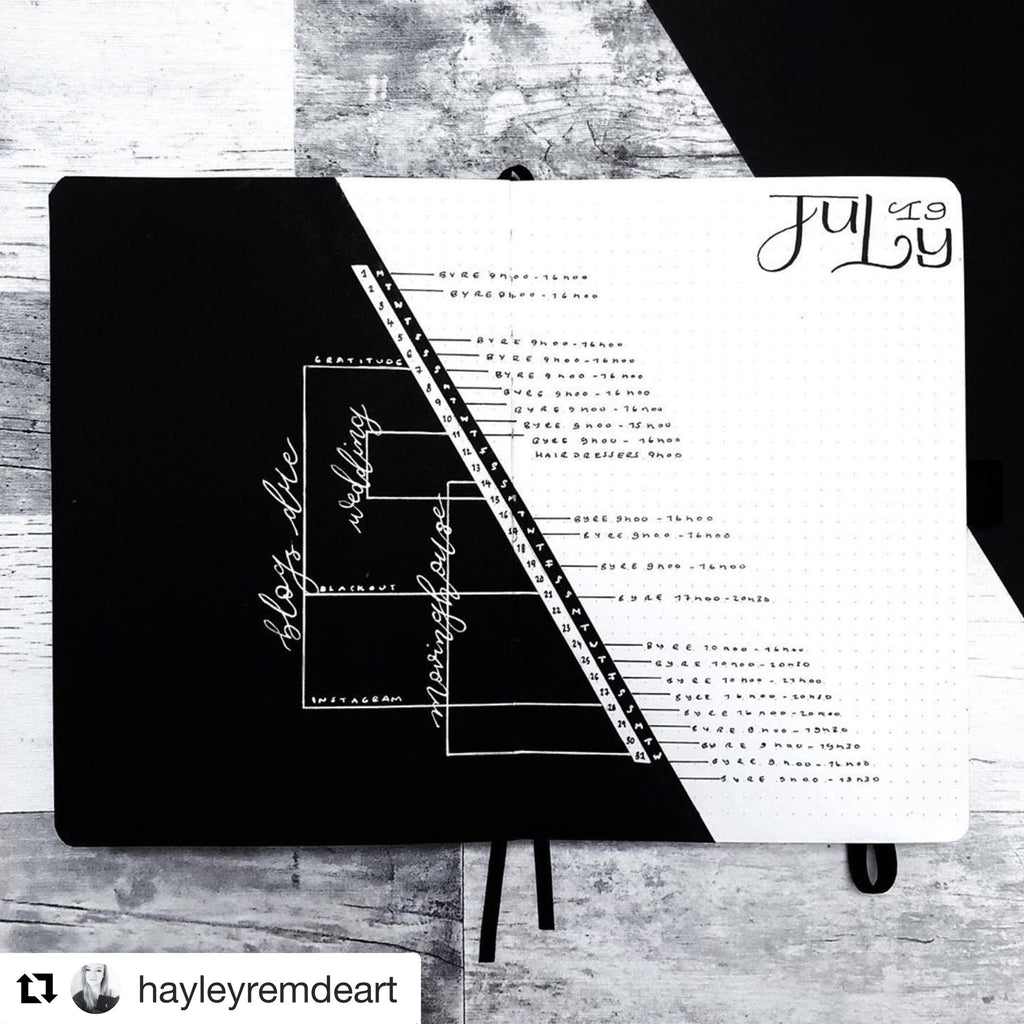 JULY '19
1 M BYRE 9h00-16h00
2 T BYRE 9h00-16h00
3 W
4 T
5 F BYRE 9h00-16h00
6 S BYRE 9h00-16h00
GRATITUDE 7 S BYRE 9h00-16h00
8 M BYRE 9h00-16h00
9 T BYRE 9h00-16h00
10 W BYRE 9h00-15h00
11 T BYRE 9h00-16h00
HAIRDRESSERS 9h00
wedding
12 F
13 S
14 S
15 M
16 T BYRE 9h00-16h00
17 W BYRE 9h00-16h00
18 T
19 F BYRE 9h00-16h00
20 S
BLACKOUT 21 S BYRE 17h00-20h30
22 M
23 T
24 W BYRE 10h00-16h00
25 T BYRE 10h00-20h30
26 F BYRE 10h00-21h00
27 S BYRE 16h00-20h30
INSTAGRAM 28 S BYRE 16h00-20h00
29 M BYRE 9h00-19h30
30 T BYRE 9h00-19h30
31 W BYRE 9h00-16h00
BYRE 9h00-19h30
blogs due
moving house
hayleyremdeart